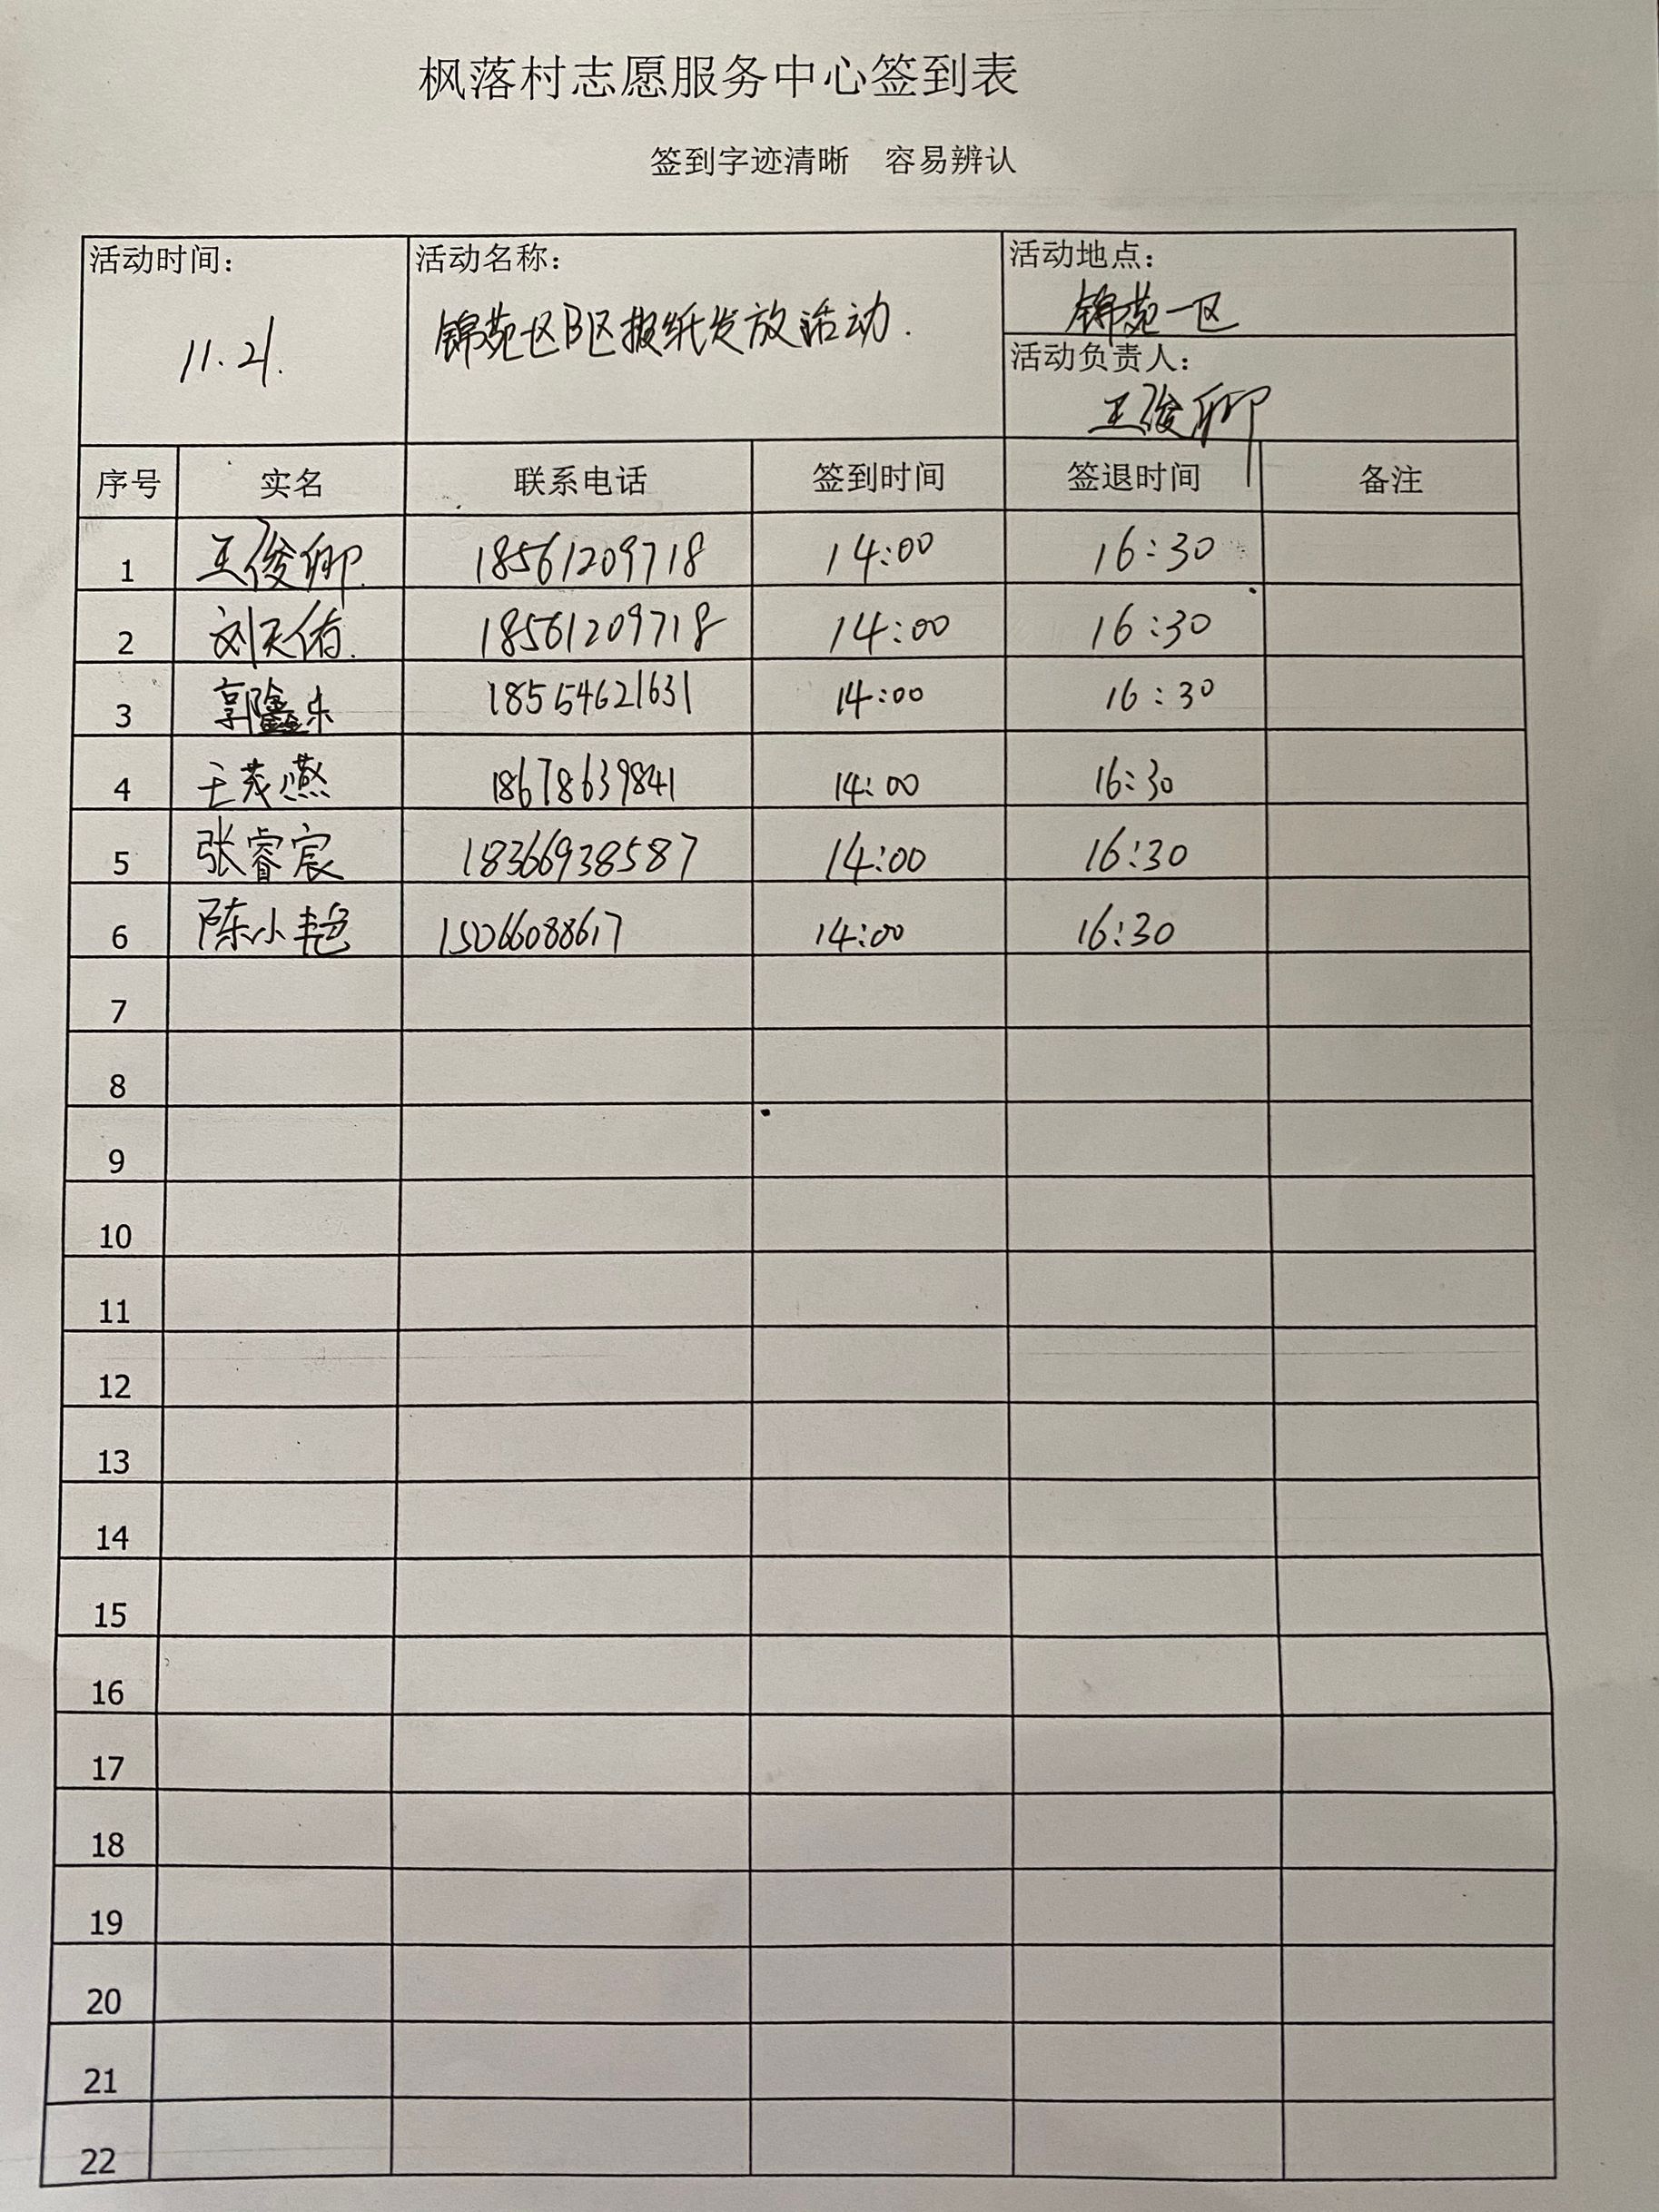 枫落村志愿服务中心签到表
签到字迹清晰 容易辨认
活动时间: 活动名称: 活动地点:
11.21. 锦苑一区B区报纸发放活动. 锦苑一区
活动负责人:
王俊卿
序号 实名 联系电话 签到时间 签退时间 备注
1 王俊卿. 18561209718 14:00 16:30
2 刘天佑. 18561209718 14:00 16:30
3 郭鑫 18554621631 14:00 16:30
4 王茂燕 18678639841 14:00 16:30
5 张睿宸 18366938587 14:00 16:30
6 陈小艳 15066088617 14:00 16:30
7
8
9
10
11
12
13
14
15
16
17
18
19
20
21
22